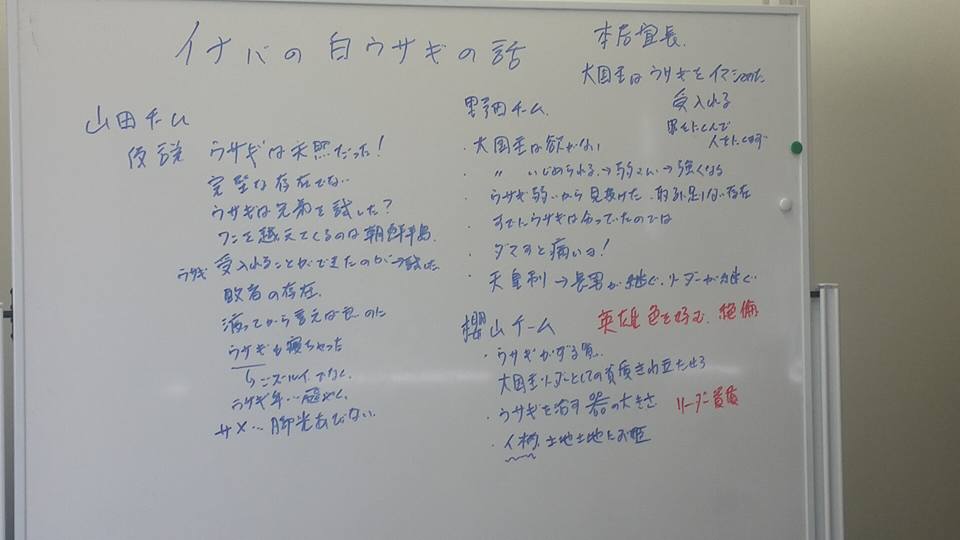 イナバの白ウサギの話
本居宣長
大国主はウサギをイマシめた
受入れる
罪をにくんで
人をにくまず
山田チーム
仮説 ウサギは天照だった!
完璧な存在でない
ウサギは兄弟を試した?
ワニを越えてくるのは朝鮮半島
ウサギ 受入れることができたのか→試した
敗者の存在
渡ってから言えば良いのに
ウサギも寝ちゃった
ズルイでなく
ウサギ年…
サメ…脚光あびない
野田チーム
・大国主は欲がない
・〃 いじめられる→弱い→強くなる
・ウサギ弱いから見抜けた 取るに足りない存在
・すでにウサギは会っていたのでは
・ダマすと痛いヨ!
・天皇制→長男が継ぐ、リーダーが継ぐ
櫻山チーム
英雄色を好む 絶倫
・ウサギがずる賢
大国主リーダーとしての資質きわ立たせる
・ウサギを治す器の大きさ リーダー資質
・人柄 土地土地にお姫